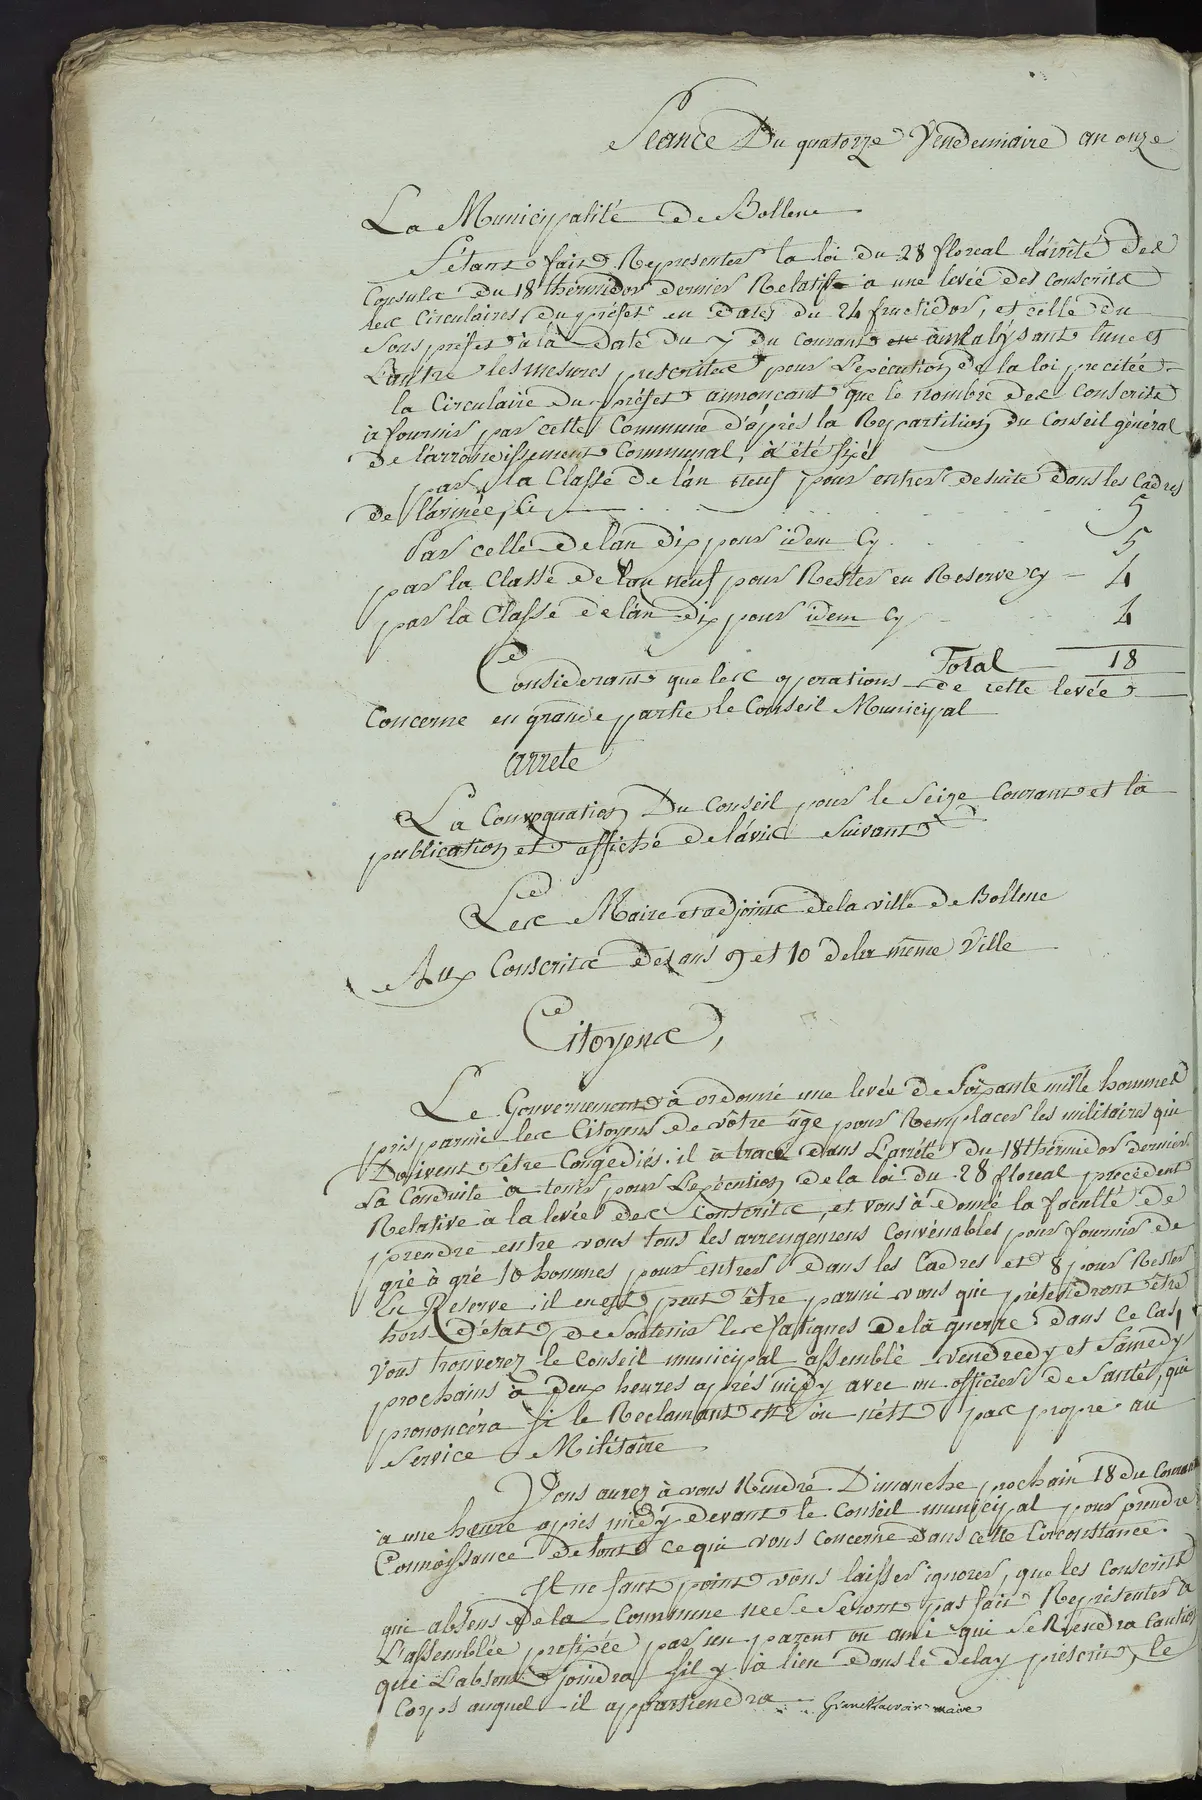 Seance Du quatorze Vendemiaire an onze
La Municipalité de Bollene
S'étant fait Representer la loi du 28 floreal l'arrêté des
Consuls du 18 thermidor dernier Relatif a une levée des conscrits
les circulaires du prefet en Dates du 24 fructidor, et celle du
Sous prefet à la Date du 7 du courant analysant l'une et
L'autre les mesures prescrites pour l'execution de la loi precitée
la Circulaire du prefet annonçant que le nombre des conscrits
à fournir par cette Commune d'après la Repartition du Conseil général
De l'arrondissement Communal, à été fixé
par la Classe de l'an neuf pour entrer de suite dans les Cadres
De l'armée, Cy 5
Par celle de l'an dix pour idem Cy 5
par la Classe de l'an neuf pour Rester en Reserve cy 4
par la Classe de l'an dix pour idem Cy 4
Total 18
Considerant que les operations de cette levée
Concerne en grande partie le Conseil Municipal
arrete
La Convoquation Du Conseil pour le Seize Courant et la
publication et affiche de l'avis Suivant
Les Maire et adjoints de la ville de Bollene
Aux Conscrits des ans 9 et 10 de la même Ville
Citoyens,
Le Gouvernement à ordonné une levée de Soixante mille hommes
pris parmi les Citoyens de vôtre âge pour Remplacer les militaires qui
Doivent être Congédiés. il à tracé dans L'arrêté du 18 thermidor dernier
La Conduite à tenir pour L'exécution de la loi du 28 floreal precedent
Relative à la levée des Conscrits, et vous à donné la faculté de
prendre entre vous tous les arrengemens convénables pour fournir de
gré à gré 10 hommes pour entrer dans les Cadres et 8 pour Rester
En Reserve. il en est peut être parmi vous qui prétendront être
hors d'état de Soutenir les fatigues de la guerre dans ce cas,
Vous trouverez le Conseil municipal assemblé vendredy et Samedy
prochains à deux heures après midy avec un officier de Santé, qui
prononcéra si le Reclamant est ou n'est pas propre au
Service Militaire
Vous aurez à vous Rendre Dimanche prochain 18 du Courant
à une heure après midy devant le Conseil municipal pour prendre
Connoissance de tout ce qui vous Concerne dans cette Circonstance.
Il ne faut point vous laisser ignorer, que les conscrits
qui absens de la Commune ne se Seront pas fait Représenter à
L'assemblée prefixée par un parent ou ami qui se Rendra Caution
que L'absent joindra s'il y à lieu dans le delay préscrit, le
Corps auquel il appartiendra maire